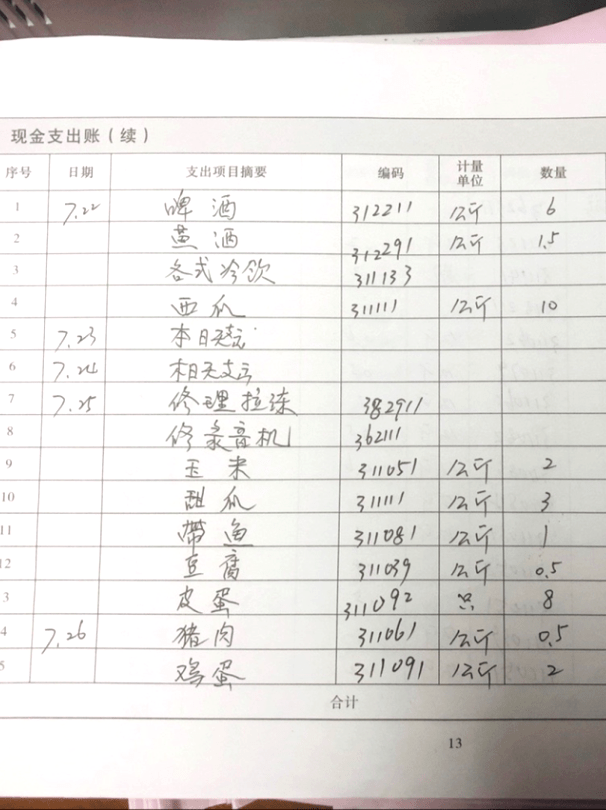 现金支出账(续)
序号 日期 支出项目摘要 编码 计量单位 数量
1 7.22 啤酒 312211 公斤 6
2 蒸酒 312291 公斤 1.5
3 各式冷饮 311133
4 西瓜 311111 公斤 10
5 7.23 本日无支
6 7.24 本日无支
7 7.25 修理拉涑 382911
8 修录音机 362111
9 玉米 311051 公斤 2
10 甜瓜 311111 公斤 3
11 带鱼 311081 公斤 1
12 豆腐 311039 公斤 0.5
3 皮蛋 311092 只 8
4 7.26 猪肉 311061 公斤 0.5
5 鸡蛋 311091 公斤 2
合计
13